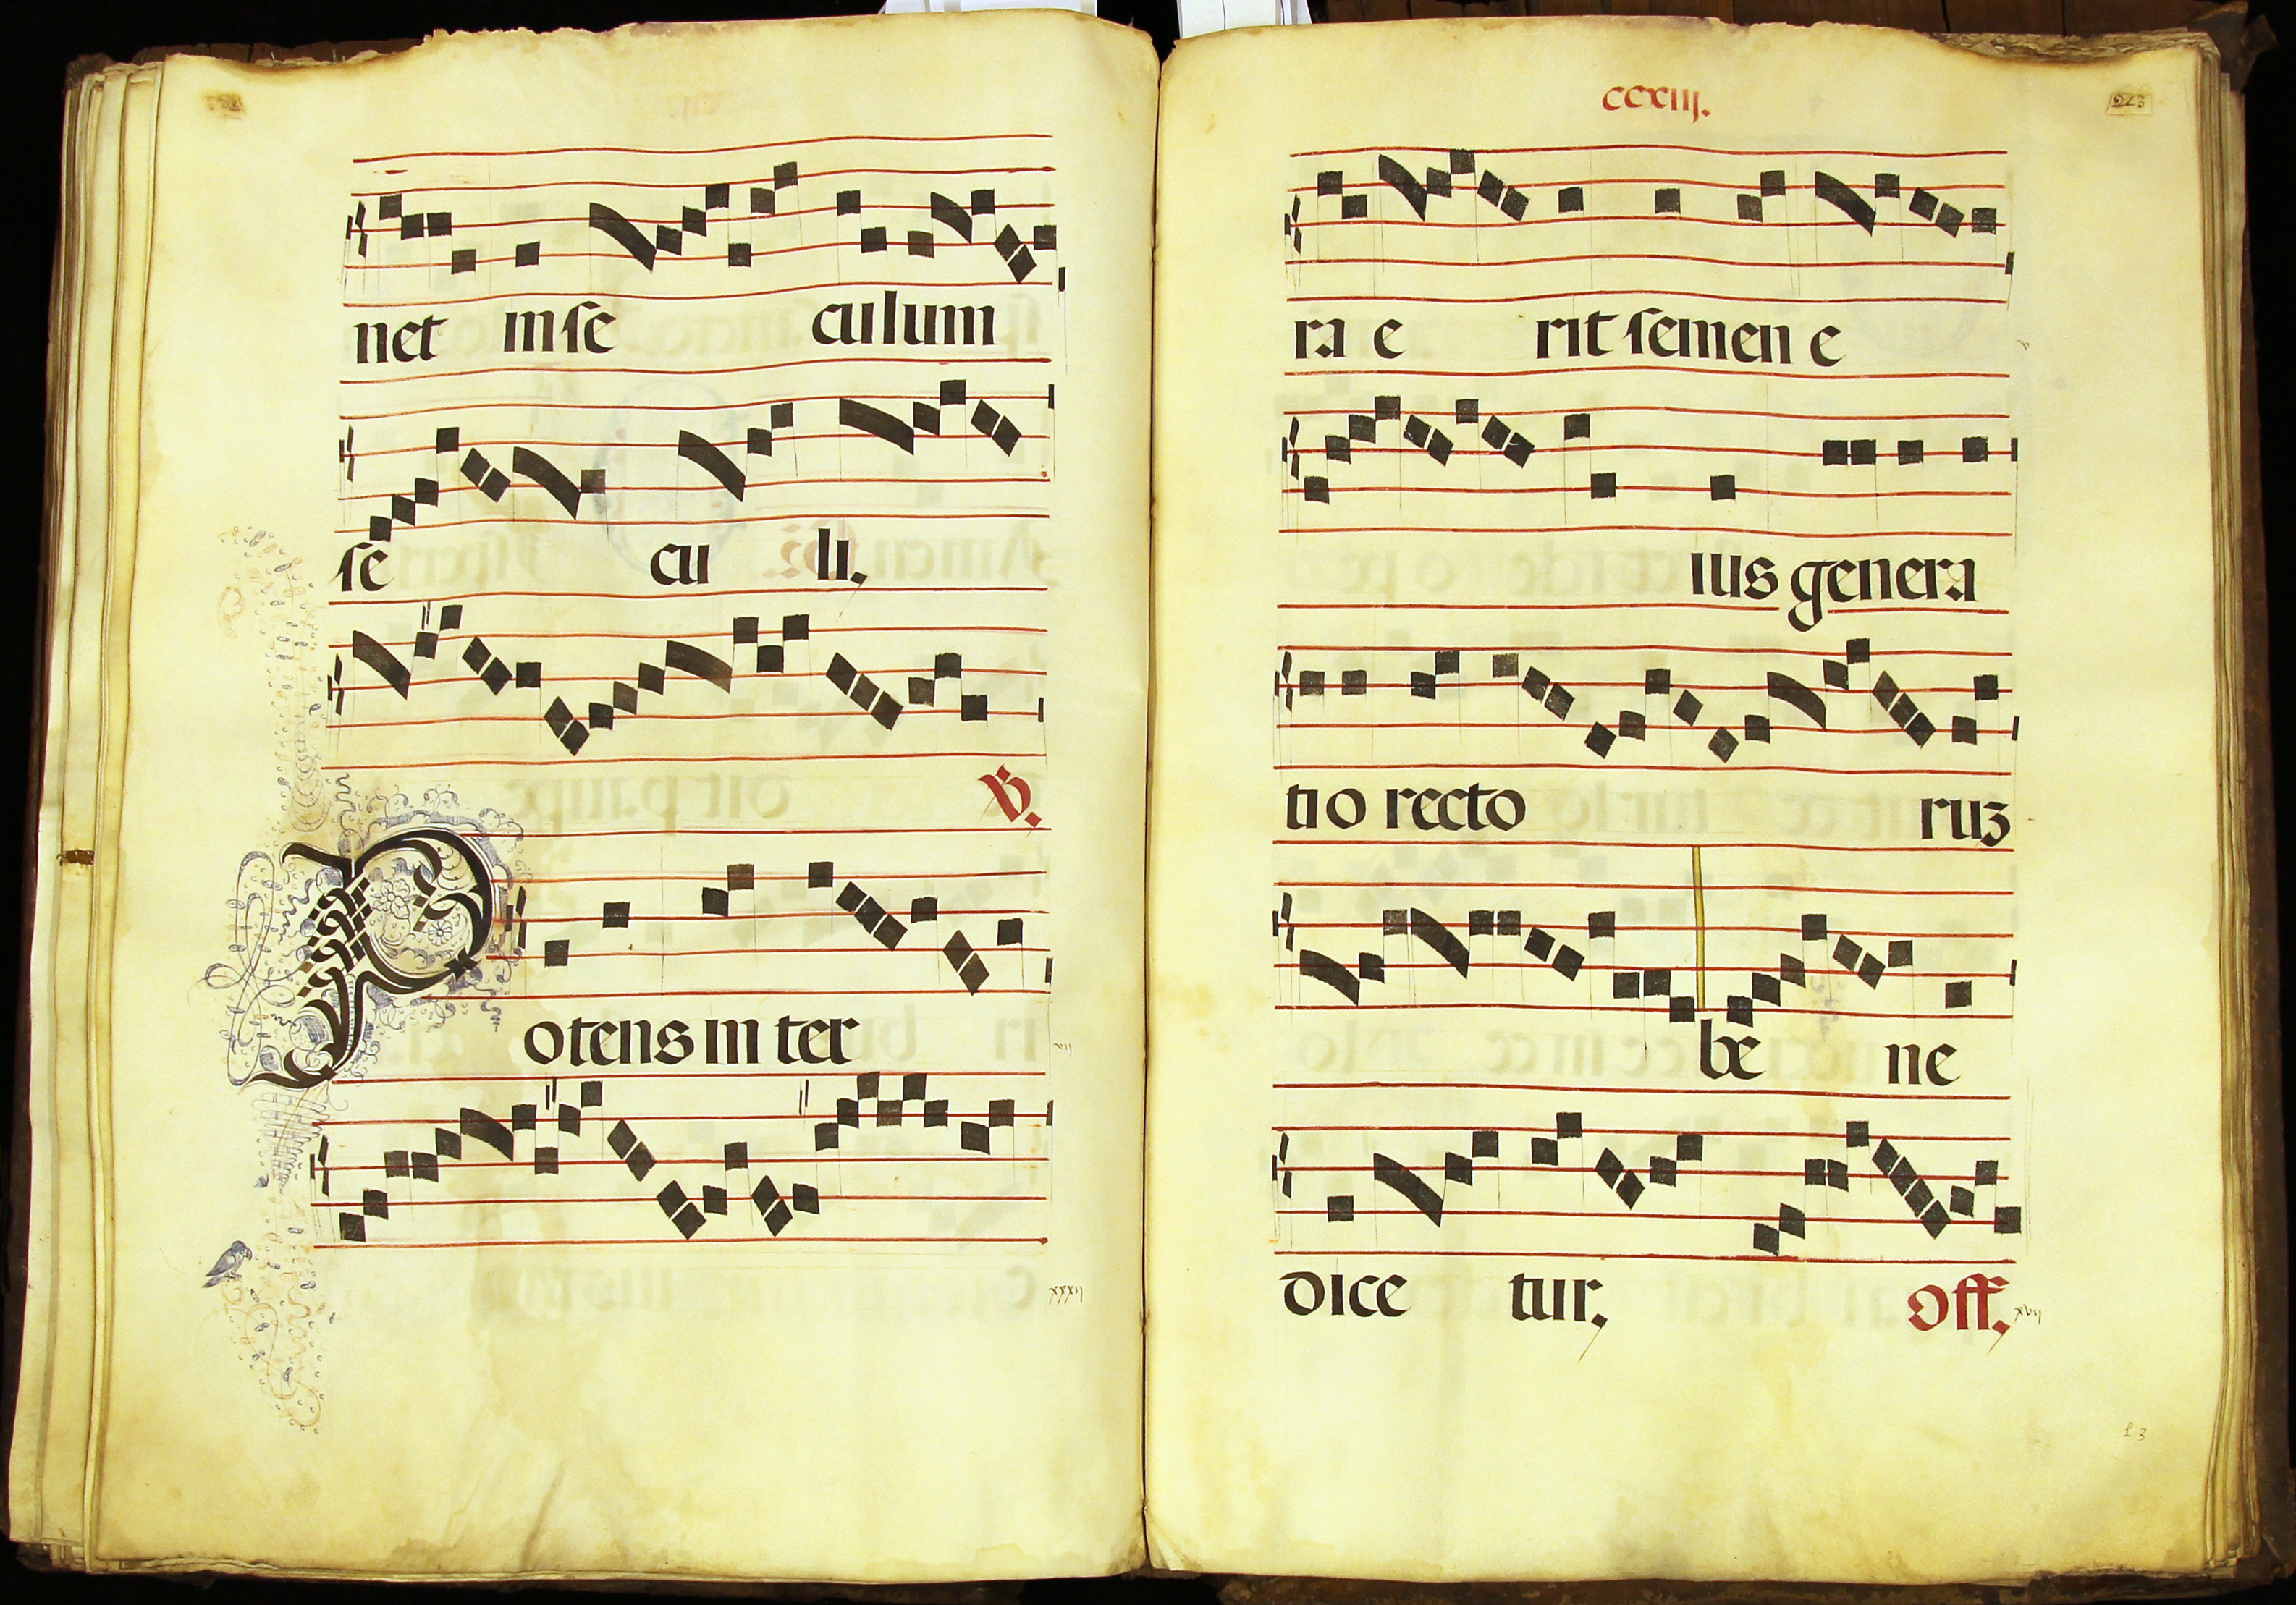 net in se culum
se cu li.
V.
Potens in ter
xxxii
ccxiii.
213
ra e rit semen e
ius genera
tio recto ruz
be ne
dice tur. Off.
xvii